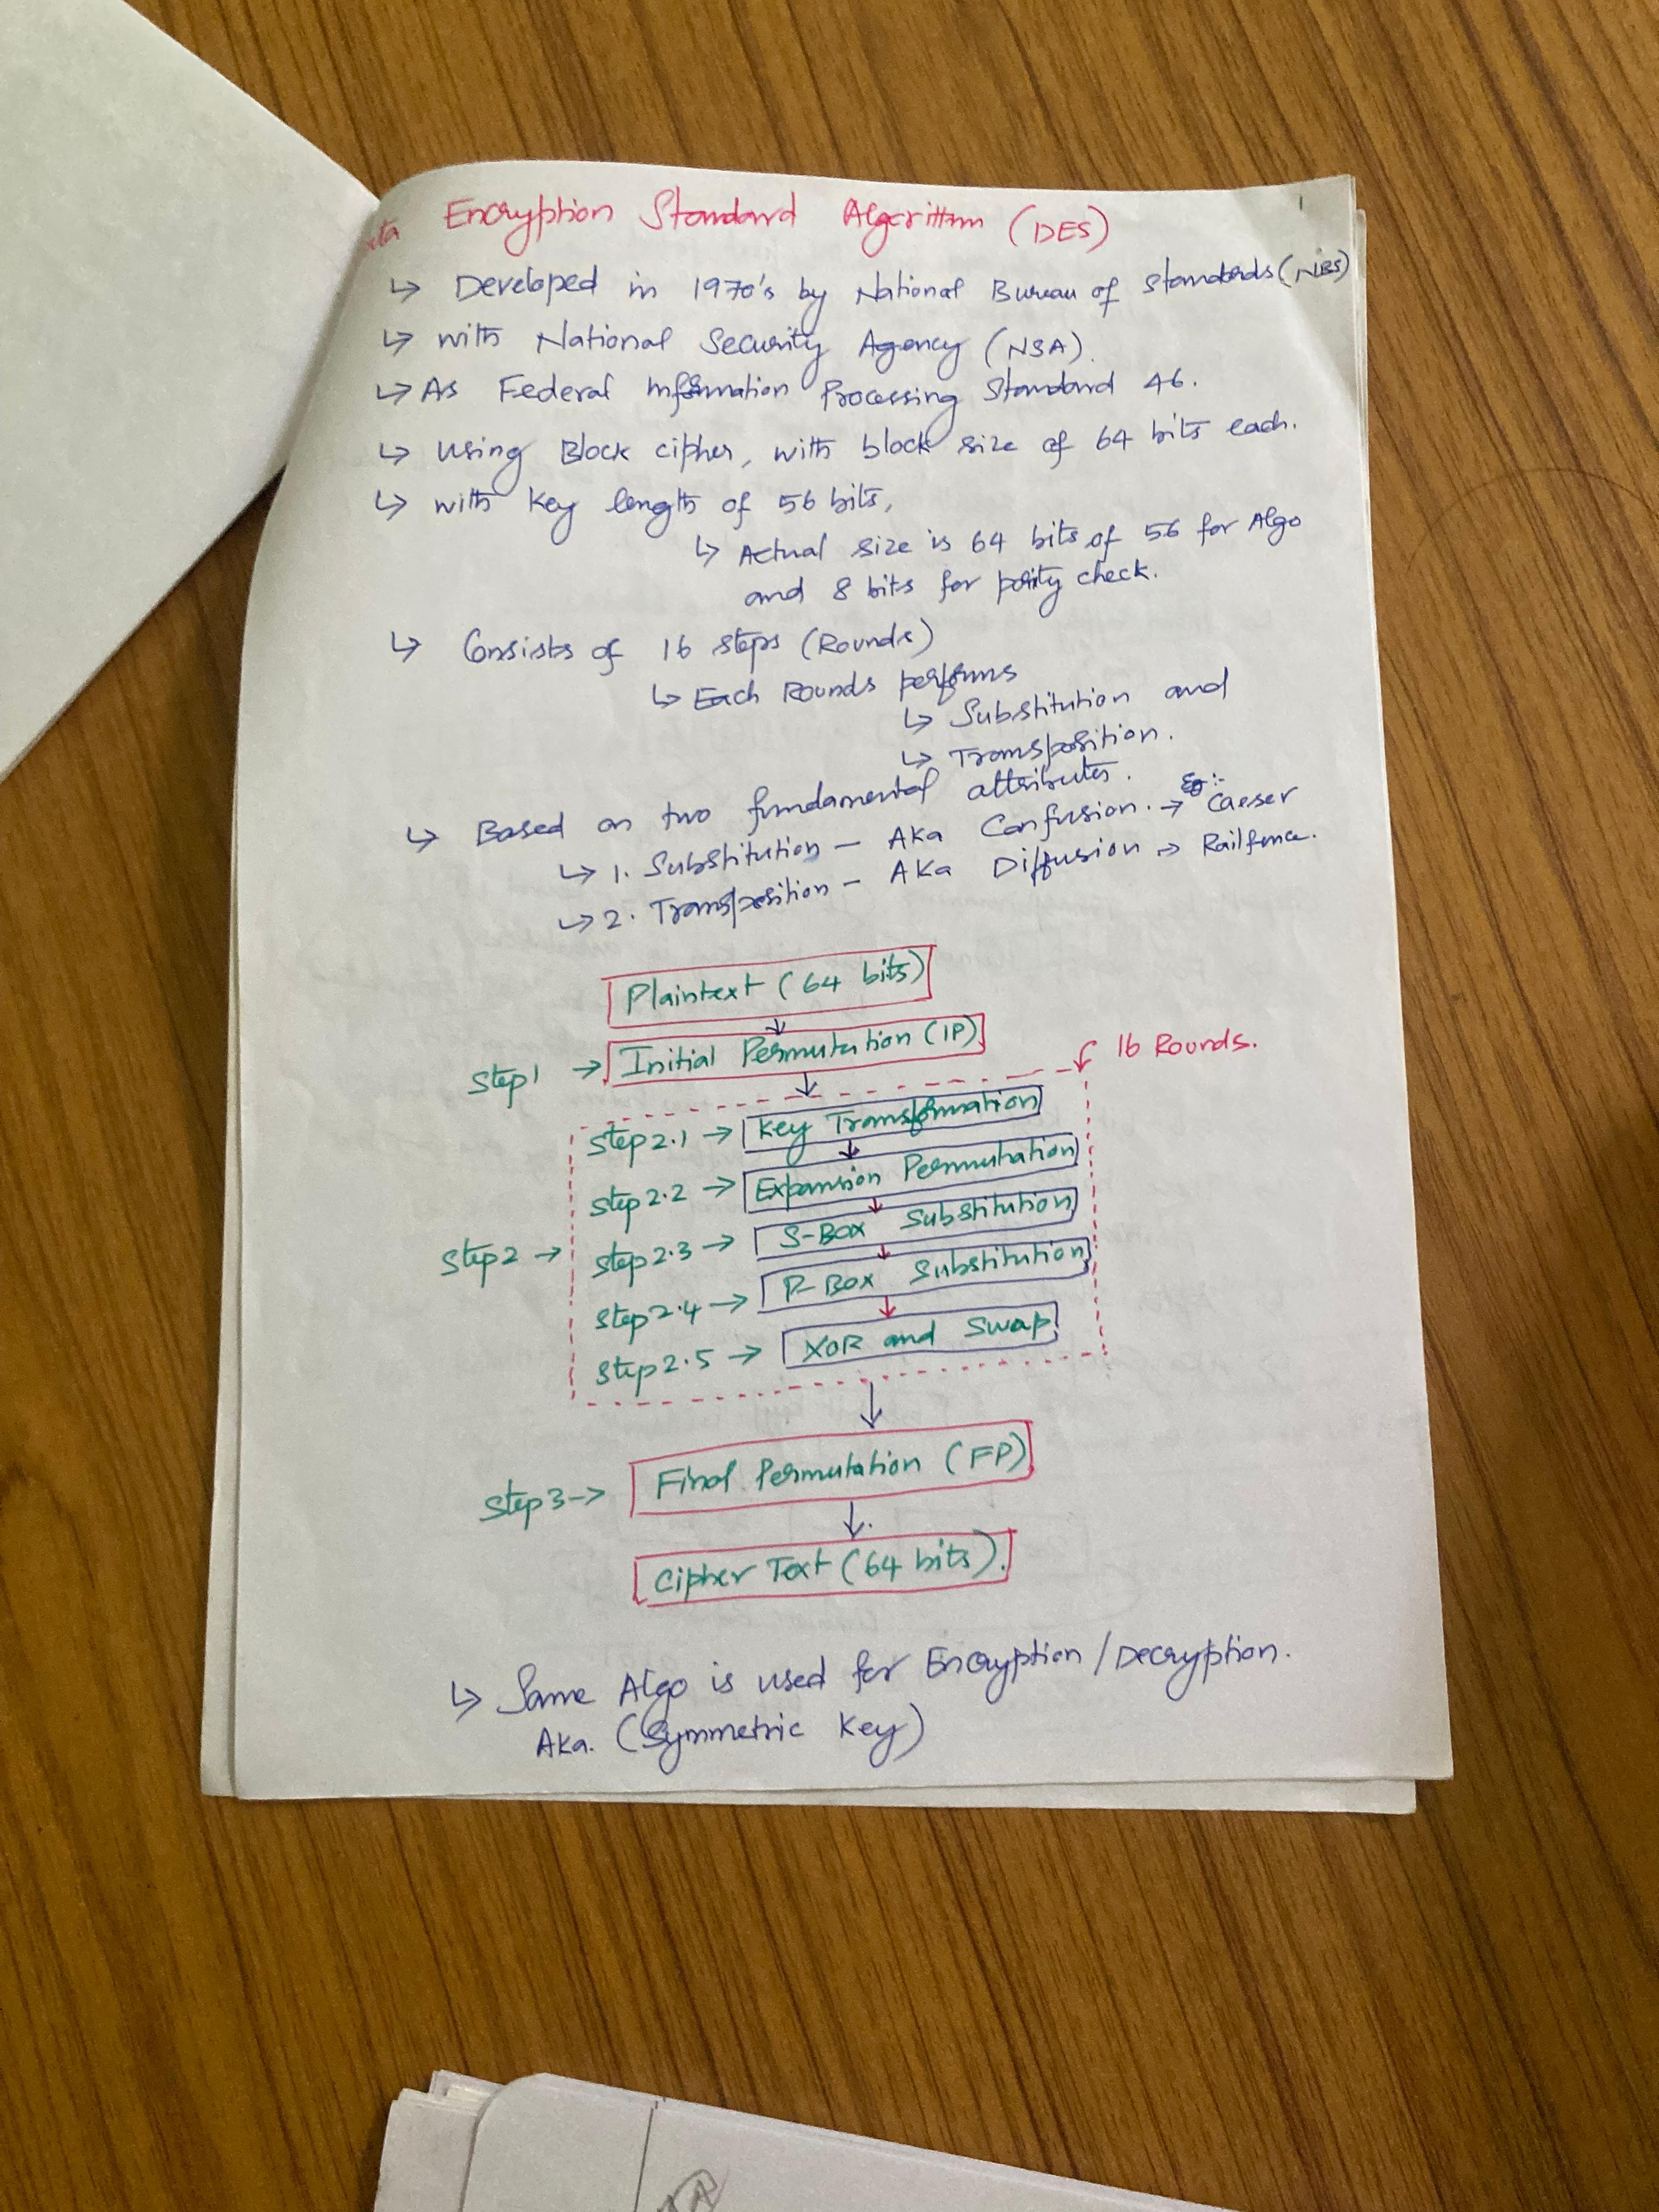 ata Encryption Standard Algorithm (DES)
1
↳ Developed in 1970's by National Bureau of Standards (NBS)
↳ with National Security Agency (NSA).
↳ As Federal Information Processing Standard 46.
↳ Using Block cipher, with block size of 64 bits each.
↳ with key length of 56 bits,
↳ Actual size is 64 bits of 56 for Algo
and 8 bits for parity check.
↳ Consists of 16 steps (Rounds)
↳ Each Rounds performs
↳ Substitution and
↳ Transposition.
↳ Based on two fundamental attributes.
↳ 1. Substitution - Aka Confusion. → Eg:- Caeser
↳ 2. Transposition - Aka Diffusion → Railfence.
Plaintext (64 bits)
Step1 → Initial Permutation (IP)
16 Rounds.
Step2 →
Step2.1 → Key Transformation
Step2.2 → Expansion Permutation
Step2.3 → S-Box Substitution
Step2.4 → P-Box Substitution
Step2.5 → XOR and Swap
Step3 → Final Permutation (FP)
Cipher Text (64 bits).
↳ Same Algo is used for Encryption/Decryption.
Aka. (Symmetric Key)